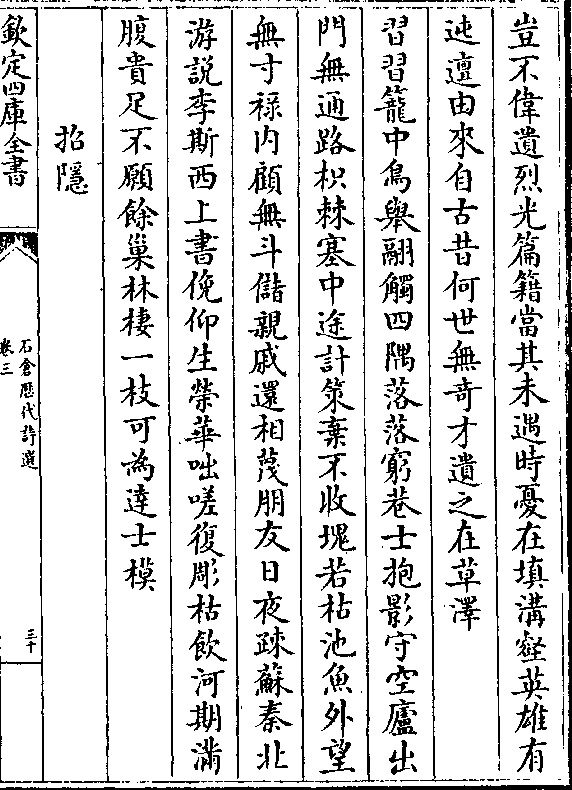 豈不偉遺烈光篇籍當其未遇時憂在填溝壑英雄有
迍邅由來自古昔何世無奇才遺之在草澤
習習籠中鳥舉翮觸四隅落落窮巷士抱影守空廬出
門無通路枳棘塞中途計策棄不收塊若枯池魚外望
無寸祿内顧無斗儲親戚還相蔑朋友日夜疎蘇秦北
游說李斯西上書俛仰生榮華咄嗟復彫枯飲河期滿
腹貴足不願餘巢林棲一枝可為達士模
招隱
欽定四庫全書
石倉歷代詩選
卷三
三十